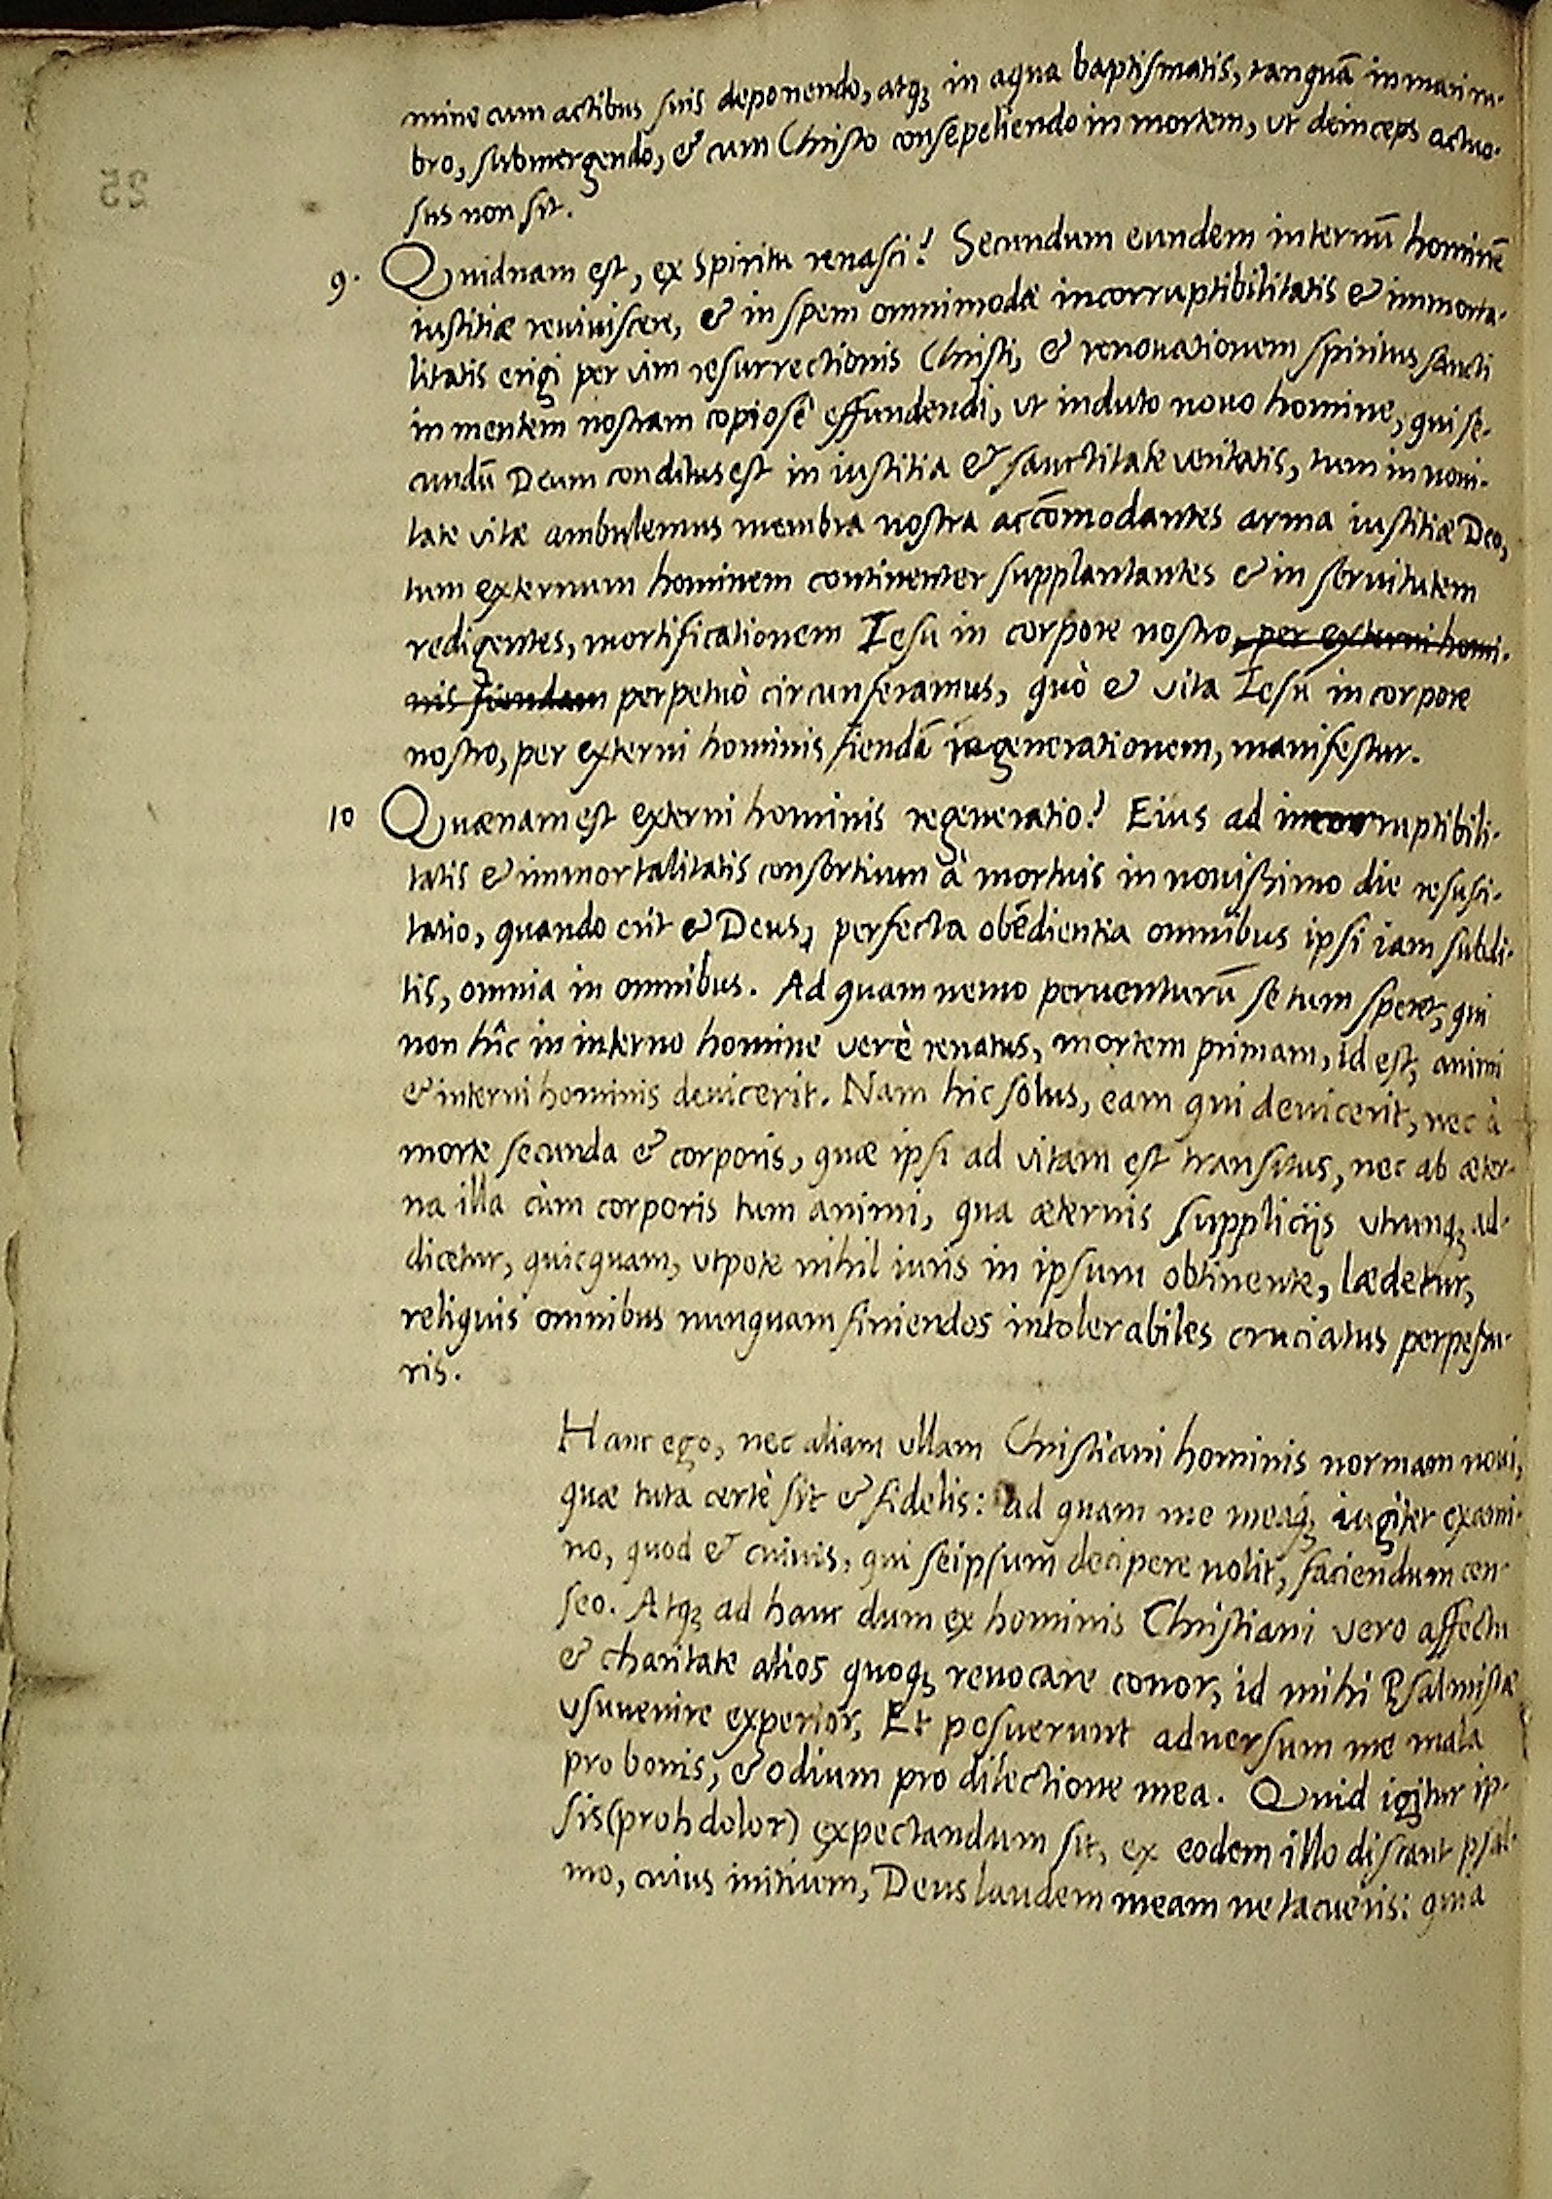 mine cum actibus suis deponendo, atq; in aqua baptismatis, tanquā in mari ru-
bro, submergendo, & cum Christo consepeliendo in mortem, ut deinceps actuo-
sus non sit.
9. Quidnam est, ex spiritu renasci? Secundum eundem internū hominē
iustitiæ reuiuiscere, & in spem omnimodæ incorruptibilitatis & immorta-
litatis erigi per vim resurrectionis Christi, & renouationem spiritus sancti
in mentem nostram copiosè effundendi, ut induto nouo homine, qui se-
cundū Deum conditus est in iustitia & sanctitate veritatis, tum in noui-
tate vitæ ambulemus membra nostra accōmodantes arma iustitiæ Deo,
tum externum hominem continenter supplantantes & in seruitutem
redigentes, mortificationem Iesu in corpore nostro, per externi homi-
nis fiendam perpetuò circunferamus, quò & vita Iesu in corpore
nostro, per externi hominis fiendā regenerationem, manifestur.
10 Quænam est externi hominis regeneratio? Eius ad incorruptibili-
tatis & immortalitatis consortium à mortuis in nouissimo die resusci-
tatio, quando erit & Deus, perfecta obedientia omnibus ipsi iam subdi-
tis, omnia in omnibus. Ad quam nemo peruenturū se tum speret, qui
non hîc in interno homine verè renatus, mortem primam, id est, animi
& interni hominis deuicerit. Nam hic solus, eam qui deuicerit, nec à
morte secunda & corporis, quæ ipsi ad vitam est transitus, nec ab æter-
na illa cùm corporis tum animi, qua æternis supplicijs utrunq; ad-
dicetur, quicquam, utpote nihil iuris in ipsum obtinente, lædetur,
reliquis omnibus nunquam finiendos intolerabiles cruciatus perpessu-
ris.
Hanc ego, nec aliam ullam Christiani hominis normam noui,
quæ tuta certè sit & fidelis: ad quam me meaq; iugiter exami-
no, quod & cuiuis, qui seipsum decipere nolit, faciendum cen-
seo. Atq; ad hanc dum ex hominis Christiani vero affectu
& charitate alios quoq; reuocare conor, id mihi Psalmistæ
usuuenire experior, Et posuerunt aduersum me mala
pro bonis, & odium pro dilectione mea. Quid igitur ip-
sis (proh dolor) expectandum sit, ex eodem illo discant psal-
mo, cuius initium, Deus laudem meam ne tacueris: quia
25